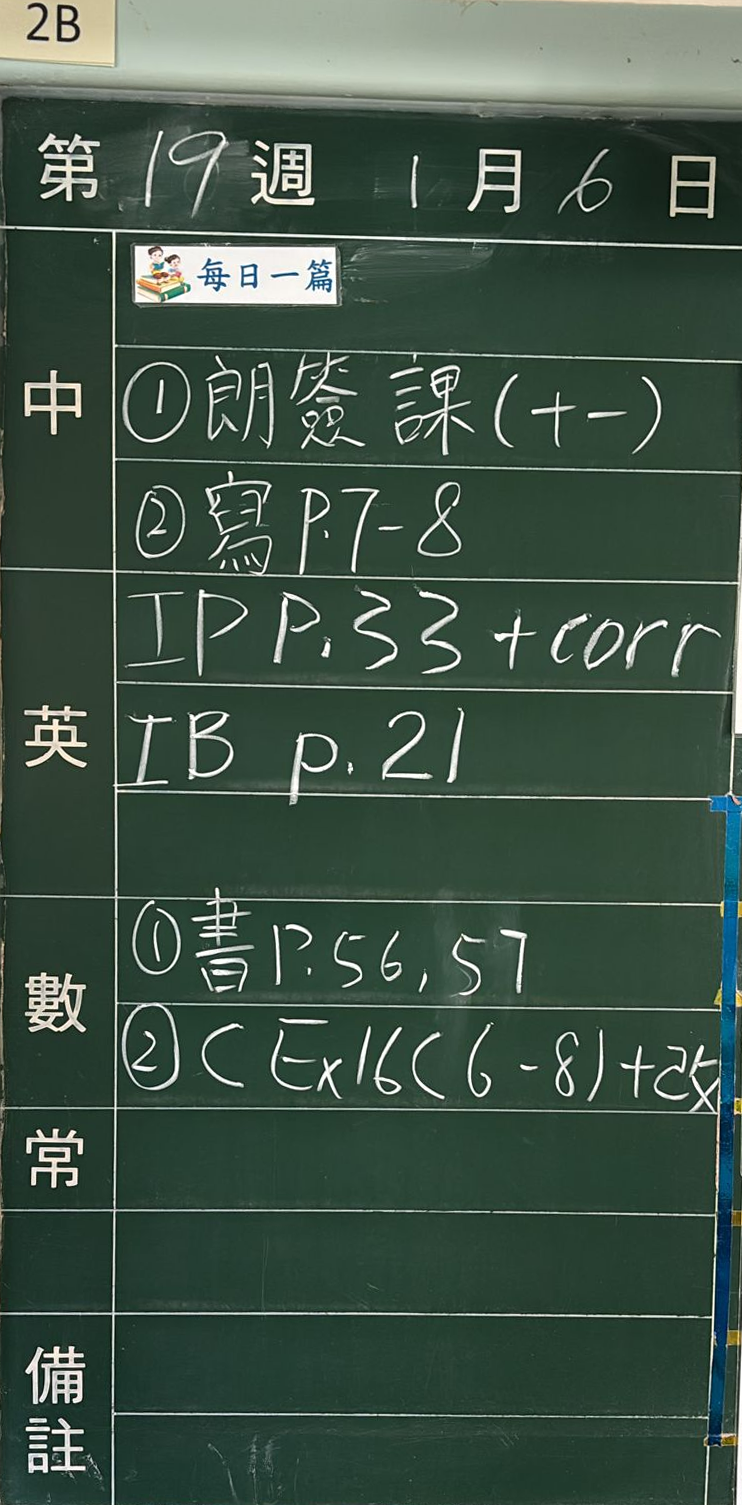 2B
第 19 週 1 月 6 日
每日一篇
中
①朗簽課(十一)
②寫P.7-8
英
IP P.33 +corr
IB p.21
數
①書P.56,57
②C Ex16(6-8)+改
常
備註